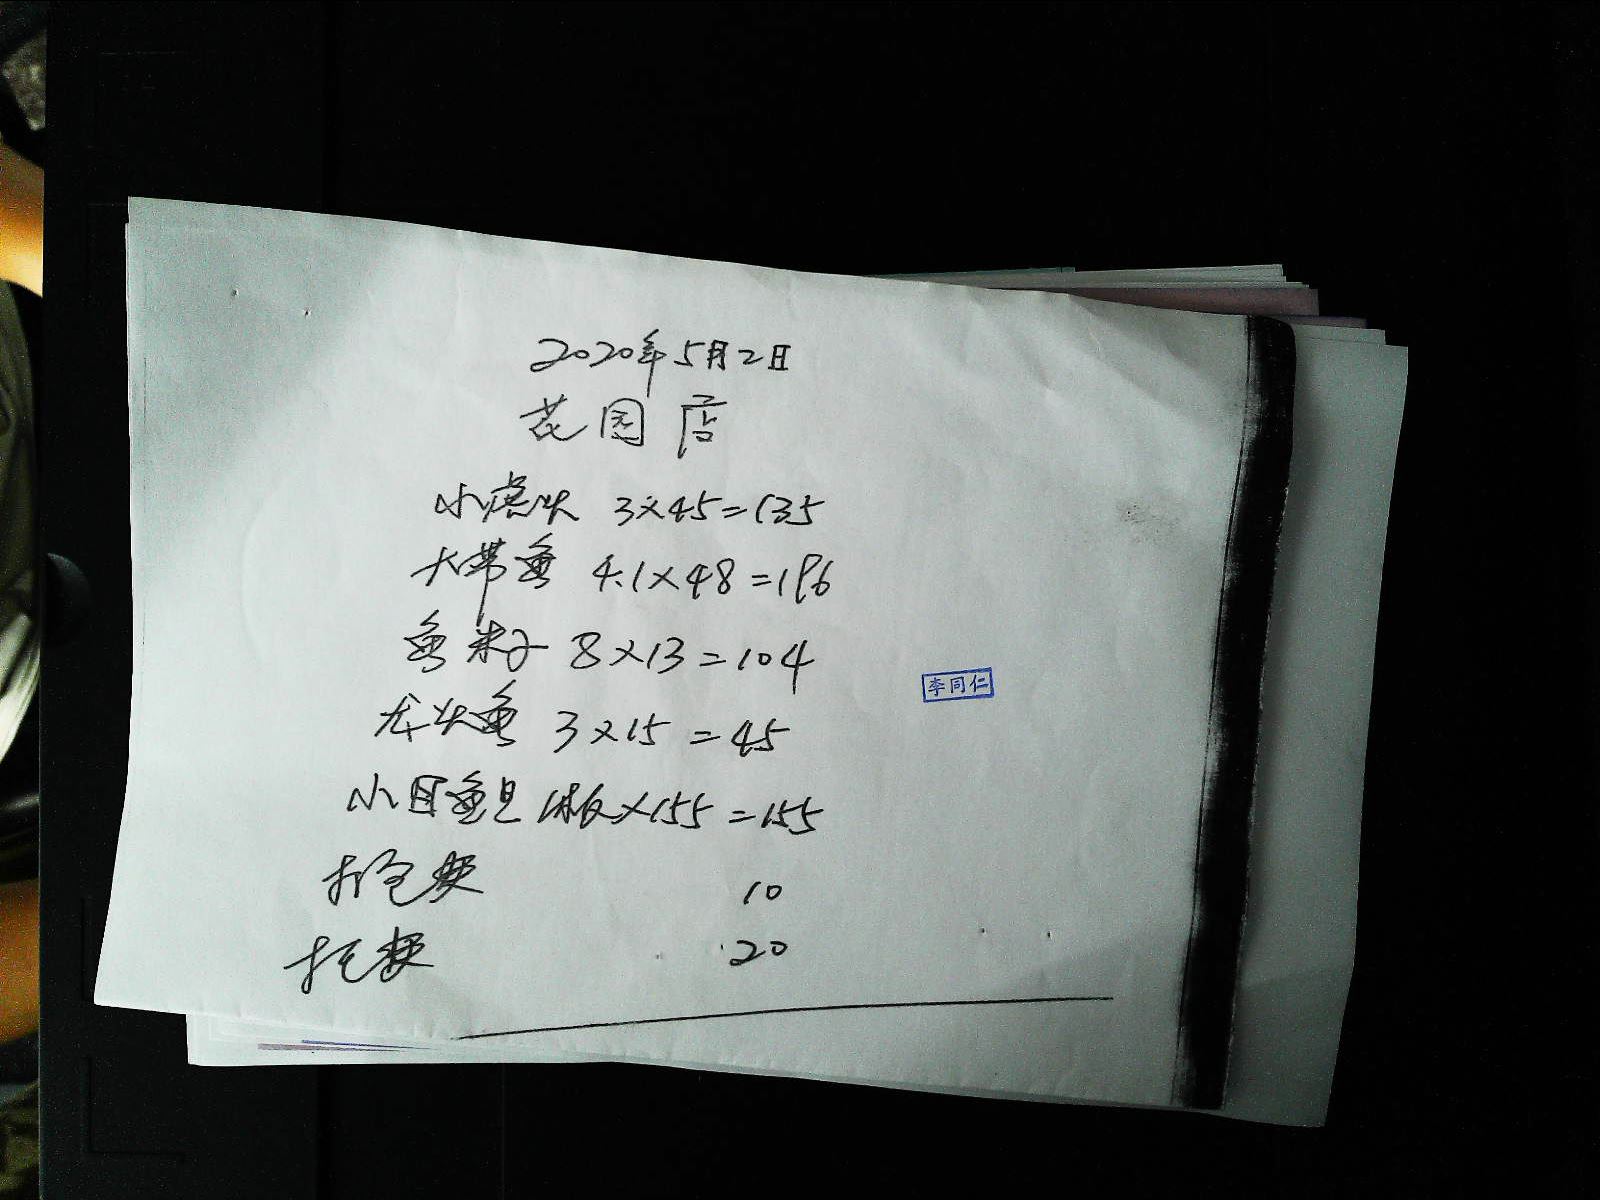 2020年5月2日
花园店
小虎头 3×45=135
大带鱼 4.1×48=196
鱼籽子 8×13=104
龙头鱼 3×15=45
小目鱼旦 1板×155=155
打包费 10
托费 20
李同仁